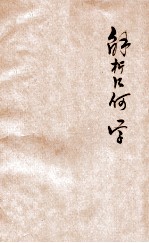 解析几何学